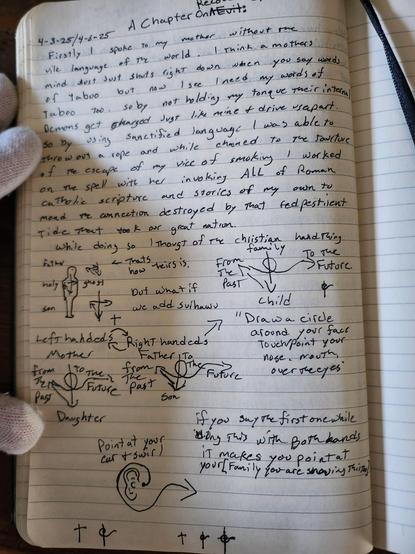 4-3-25/4-6-25
A Chapter On
Firstly I spoke to my mother without the
vile language of the world. I think a mothers
mind just shuts right down when you say words
of Taboo but now I see I need my words of
Taboo too. so by not holding my tongue their internal
Demons get charged Just like mine & drive us apart.
so by using sanctified language I was able to
throw out a rope and while chained to the torture
of the escape of my vice of smoking I worked
on the spell with her invoking ALL of Roman
catholic scripture and stories of my own to
mend the connection destroyed by that
Tide that took our great nation.
While doing so I thought of the christian hand thing
Father
holy ghost
son
← Thats how theirs is.
but what if
we add
family
From The Past
To The Future
Child
Left handeds
Right handeds
"Draw a circle
around your face
Touch/Point your
nose, mouth,
over the eyes"
Mother
From The Past
to The Future
Daughter
Father
From The Past
To The Future
Son
if you say the first one while
doing this with Both hands
it makes you point at
your [Family you are
Point at your
ear & swirl